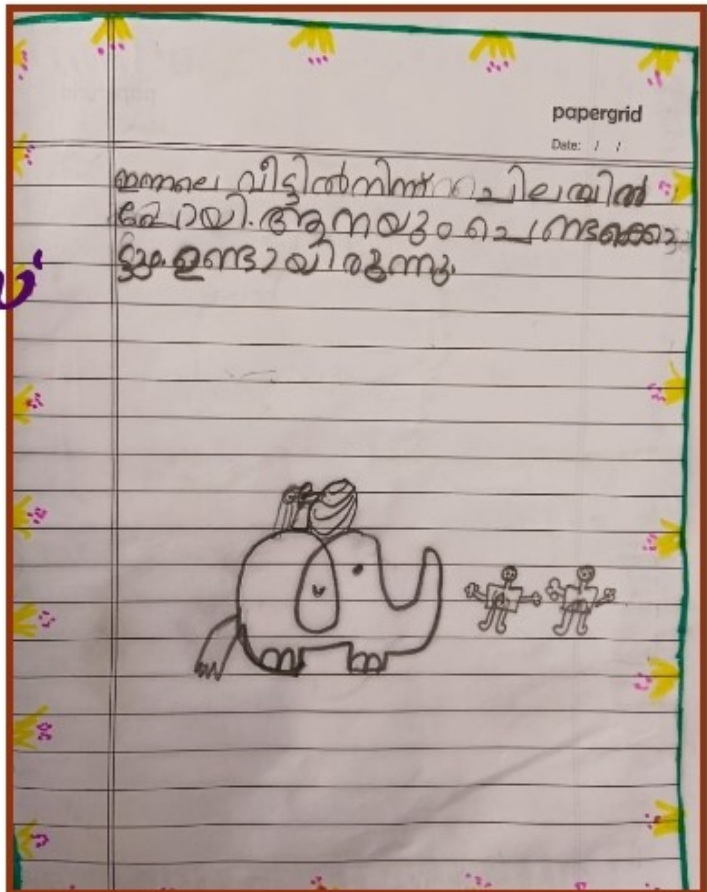 papergrid
Date: / /
ഇന്നലെ വീട്ടിൽനിന്ന് ചിലമ്പിൽ
പോയി. ആനയും ചെണ്ടക്കൊ
ട്ടും ഉണ്ടായിരുന്നു.